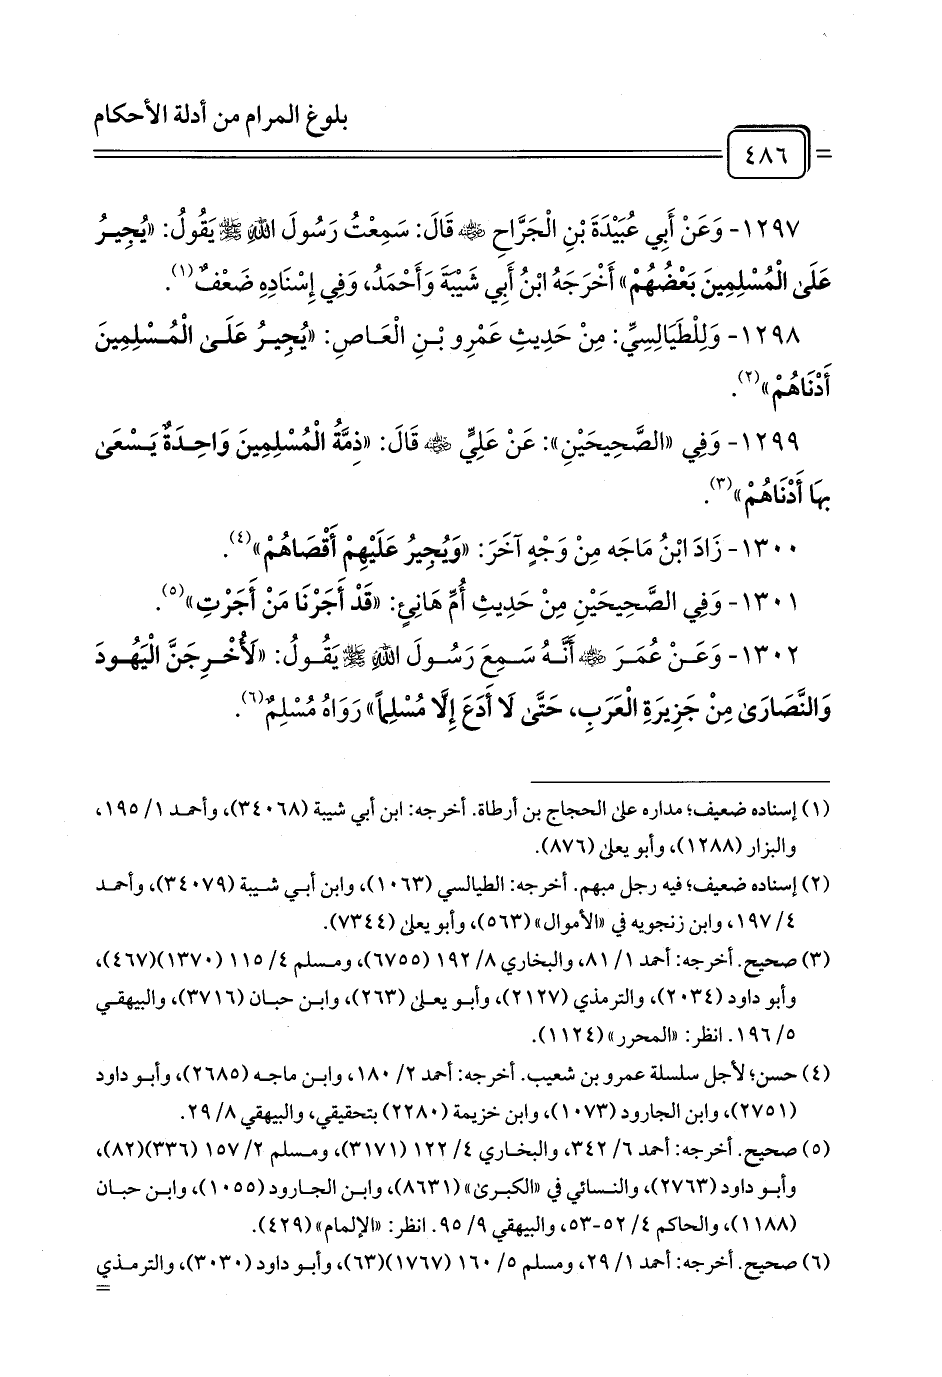 بلوغ المرام من أدلة الأحكام
٤٨٦
١٢٩٧- وَعَنْ أَبِي عُبَيْدَةَ بْنِ الْجَرَّاحِ ﵁ قَالَ: سَمِعْتُ رَسُولَ اللهِ ﷺ يَقُولُ: «يُجِيرُ
عَلَى الْمُسْلِمِينَ بَعْضُهُمْ» أَخْرَجَهُ ابْنُ أَبِي شَيْبَةَ وَأَحْمَدُ، وَفِي إِسْنَادِهِ ضَعْفٌ(١).
١٢٩٨- وَلِلْطَيَالِسِيِّ: مِنْ حَدِيثِ عَمْرِو بْنِ الْعَاصِ: «يُجِيرُ عَلَى الْمُسْلِمِينَ
أَدْنَاهُمْ»(٢).
١٢٩٩- وَفِي «الصَّحِيحَيْنِ»: عَنْ عَلِيٍّ ﵁ قَالَ: «ذِمَّةُ الْمُسْلِمِينَ وَاحِدَةٌ يَسْعَى
بِهَا أَدْنَاهُمْ»(٣).
١٣٠٠- زَادَ ابْنُ مَاجَه مِنْ وَجْهٍ آخَرَ: «وَيُجِيرُ عَلَيْهِمْ أَقْصَاهُمْ»(٤).
١٣٠١- وَفِي الصَّحِيحَيْنِ مِنْ حَدِيثِ أُمِّ هَانِئٍ: «قَدْ أَجَرْنَا مَنْ أَجَرْتِ»(٥).
١٣٠٢- وَعَنْ عُمَرَ ﵁ أَنَّهُ سَمِعَ رَسُولَ اللهِ ﷺ يَقُولُ: «لَأُخْرِجَنَّ الْيَهُودَ
وَالنَّصَارَى مِنْ جَزِيرَةِ الْعَرَبِ، حَتَّى لَا أَدَعَ إِلَّا مُسْلِماً» رَوَاهُ مُسْلِمٌ(٦).
(١) إسناده ضعيف؛ مداره على الحجاج بن أرطاة. أخرجه: ابن أبي شيبة (٣٤٠٦٨)، وأحمد ١/ ١٩٥،
والبزار (١٢٨٨)، وأبو يعلى (٨٧٦).
(٢) إسناده ضعيف؛ فيه رجل مبهم. أخرجه: الطيالسي (١٠٦٣)، وابن أبي شيبة (٣٤٠٧٩)، وأحمد
٤/ ١٩٧، وابن زنجويه في «الأموال» (٥٦٣)، وأبو يعلى (٧٣٤٤).
(٣) صحيح. أخرجه: أحمد ١/ ٨١، والبخاري ٨/ ١٩٢ (٦٧٥٥)، ومسلم ٤/ ١١٥ (١٣٧٠)(٤٦٧)،
وأبو داود (٢٠٣٤)، والترمذي (٢١٢٧)، وأبو يعلى (٢٦٣)، وابن حبان (٣٧١٦)، والبيهقي
٥/ ١٩٦. انظر: «المحرر» (١١٢٤).
(٤) حسن؛ لأجل سلسلة عمرو بن شعيب. أخرجه: أحمد ٢/ ١٨٠، وابن ماجه (٢٦٨٥)، وأبو داود
(٢٧٥١)، وابن الجارود (١٠٧٣)، وابن خزيمة (٢٢٨٠) بتحقيقي، والبيهقي ٨/ ٢٩.
(٥) صحيح. أخرجه: أحمد ٦/ ٣٤٢، والبخاري ٤/ ١٢٢ (٣١٧١)، ومسلم ٢/ ١٥٧ (٣٣٦)(٨٢)،
وأبو داود (٢٧٦٣)، والنسائي في «الكبرى» (٨٦٣١)، وابن الجارود (١٠٥٥)، وابن حبان
(١١٨٨)، والحاكم ٤/ ٥٢-٥٣، والبيهقي ٩/ ٩٥. انظر: «الإلمام» (٤٢٩).
(٦) صحيح. أخرجه: أحمد ١/ ٢٩، ومسلم ٥/ ١٦٠ (١٧٦٧)(٦٣)، وأبو داود (٣٠٣٠)، والترمذي
=